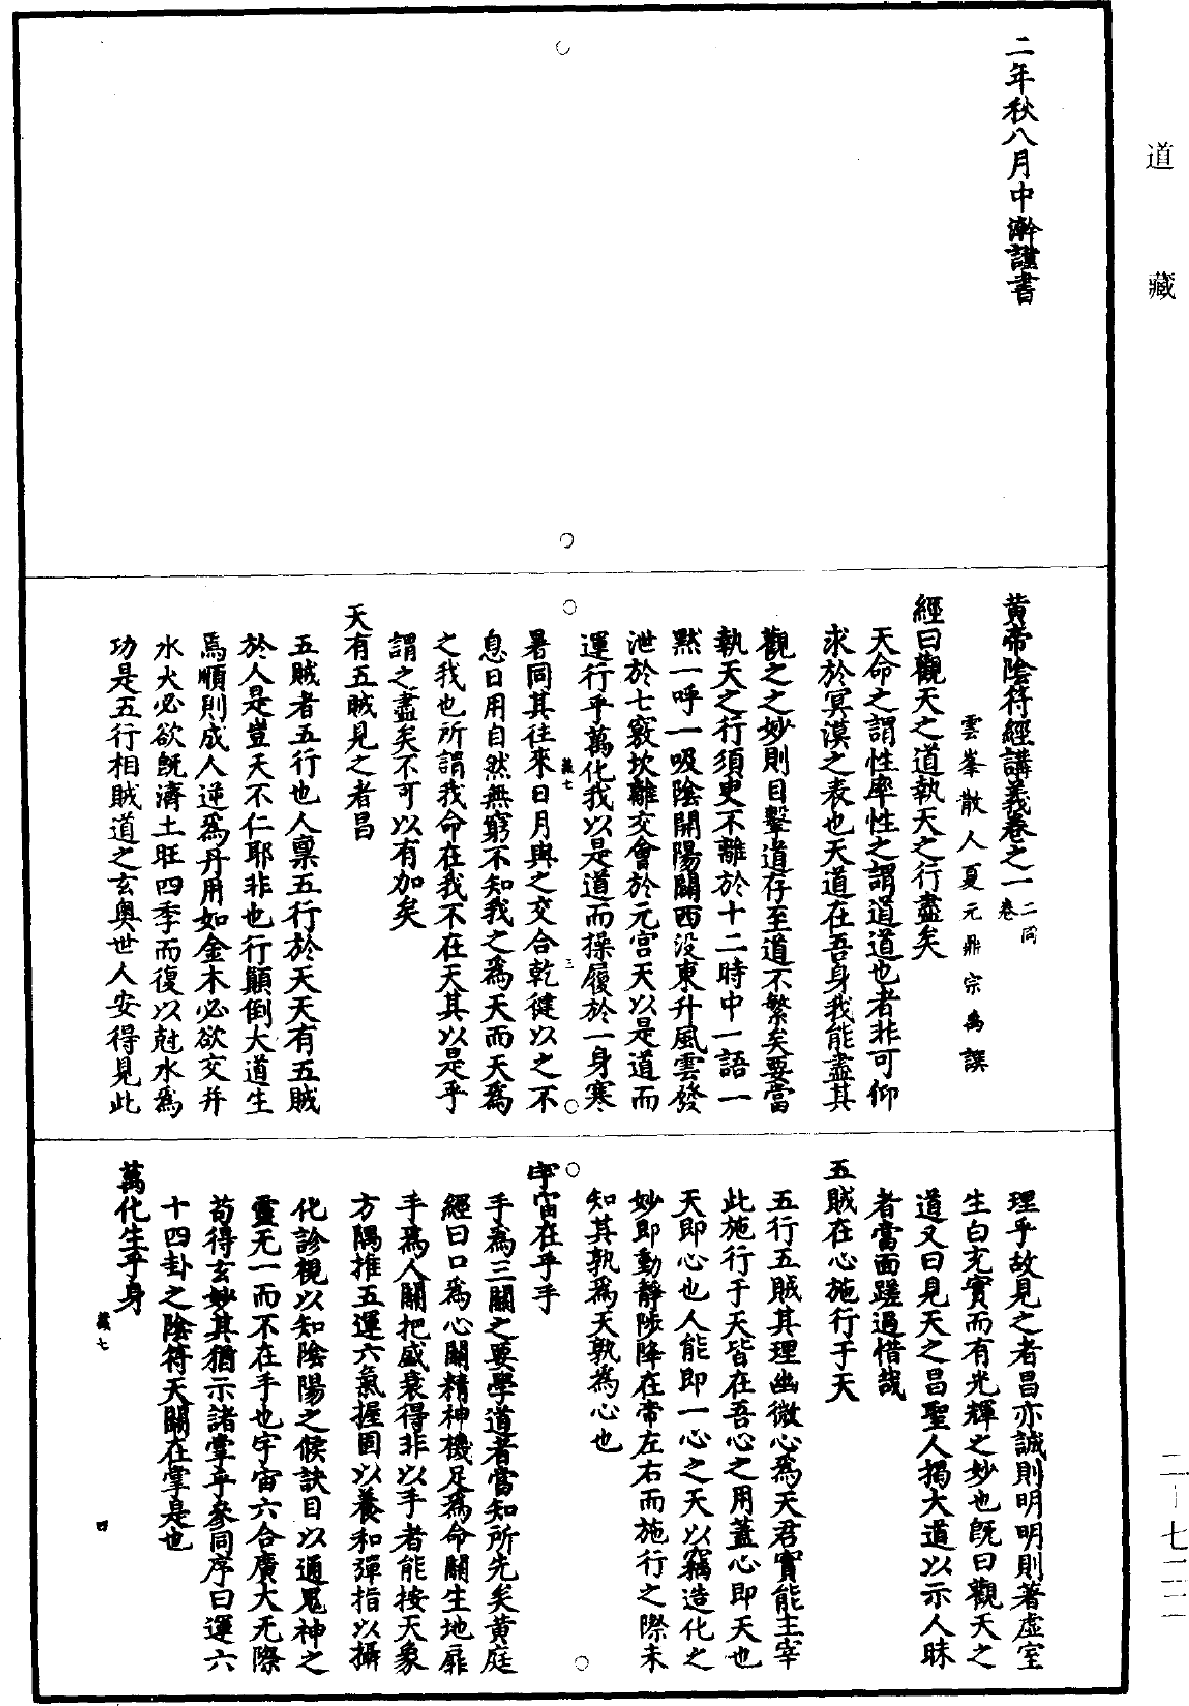 道藏
二年秋八月中澣謹書
黃帝陰符經講義卷之一二同卷
雲峯散人夏元鼎宗禹譔
經曰觀天之道執天之行盡矣
天命之謂性率性之謂道道也者非可仰
求於冥漠之表也天道在吾身我能盡其
觀之之妙則目擊道存至道不繁矣要當
執天之行須臾不離於十二時中一語一
默一呼一吸陰開陽闢西沒東升風雲發
泄於七竅坎離交會於元宮天以是道而
運行乎萬化我以是道而操履於一身寒
藏七
三
暑同其往來日月與之交合乾健以之不
息日用自然無窮不知我之爲天而天爲
之我也所謂我命在我不在天其以是乎
謂之盡矣不可以有加矣
天有五賊見之者昌
五賊者五行也人禀五行於天天有五賊
於人是豈天不仁耶非也行顛倒大道生
焉順則成人逆爲丹用如金木必欲交幷
水火必欲旣濟土旺四季而復以尅水爲
功是五行相賊道之玄奧世人安得見此
理乎故見之者昌亦誠則明明則著虛室
生白充實而有光輝之妙也旣曰觀天之
道又曰見天之昌聖人揭大道以示人昧
者當面蹉過惜哉
五賊在心施行于天
五行五賊其理幽微心爲天君實能主宰
此施行于天皆在吾心之用蓋心即天也
天即心也人能即一心之天以竊造化之
妙即動靜陟降在常左右而施行之際未
知其孰爲天孰爲心也
宇宙在乎手
手爲三關之要學道者當知所先矣黃庭
經曰口爲心關精神機足爲命關生地扉
手爲人關把盛衰得非以手者能按天象
方隅推五運六氣握固以養和彈指以攝
化診視以知陰陽之候訣目以通鬼神之
靈无一而不在手也宇宙六合廣大无際
苟得玄妙其猶示諸掌乎參同序曰運六
十四卦之陰符天關在掌是也
萬化生乎身
藏七
四
二—七二二